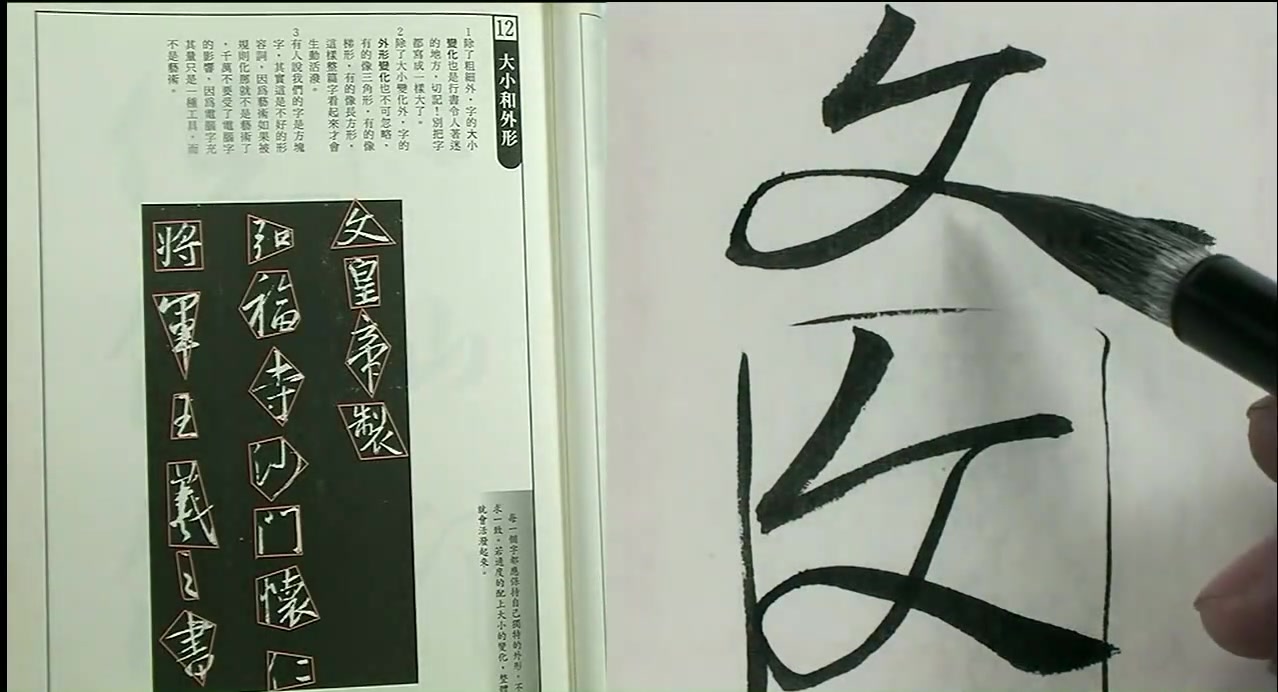 12
大小和外形
1除了粗細外，字的大小
變化也是行書令人著迷
的地方，切記！別把字
都寫成一樣大了。
2除了大小變化外，字的
外形變化也不可忽略，
有的像三角形，有的像
梯形，有的像長方形，
這樣整篇字看起來才會
生動活潑。
3有人說我們的字是方塊
字，其實這是不好的形
容詞，因爲藝術如果被
規則化那就不是藝術了
，千萬不要受了電腦字
的影響，因爲電腦字充
其量只是一種工具，而
不是藝術。
文皇帝製
弘福寺沙門懷仁
將軍王羲之書
每一個字都應保持自己獨特的外形，不
求一致，若適度的配上大小的變化，整體
就會活潑起來。
文
文